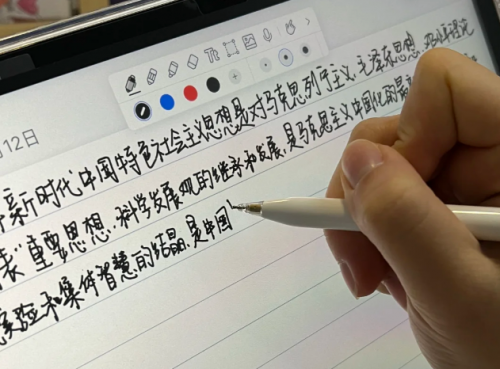 12日
新时代中国特色社会主义思想是对马克思列宁主义、毛泽东思想、邓小平理论
表"重要思想、科学发展观的继承和发展，是马克思主义中国化的最
实验和集体智慧的结晶，是中国